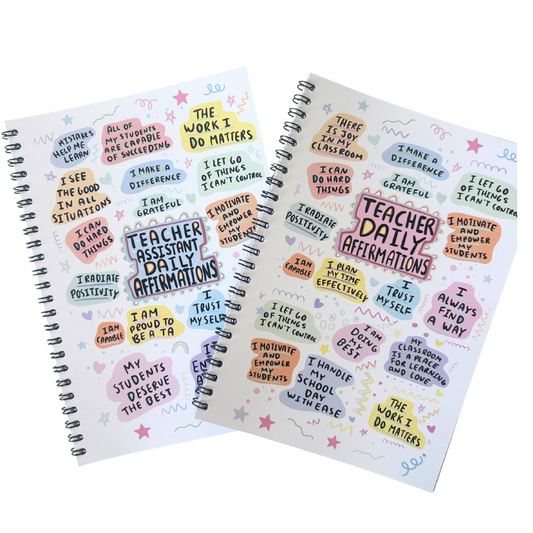 MISTAKES
HELP ME
LEARN
ALL OF
MY STUDENTS
ARE CAPABLE
OF SUCCEEDING
THE
WORK I
DO MATTERS
I SEE
THE GOOD
IN ALL
SITUATIONS
I MAKE A
DIFFERENCE
I LET GO
OF THINGS
I CAN'T CONTROL
I AM
GRATEFUL
I CAN
DO HARD
THINGS
TEACHER
ASSISTANT
DAILY
AFFIRMATIONS
I MOTIVATE
AND
EMPOWER
MY STUDENTS
I RADIATE
POSITIVITY
I AM
CAPABLE
I AM
PROUD TO
BE A TA
I
TRUST
MYSELF
MY
STUDENTS
DESERVE
THE BEST
THERE
IS JOY
IN MY
CLASSROOM
I MAKE A
DIFFERENCE
I CAN
DO HARD
THINGS
I AM
GRATEFUL
I LET GO
OF THINGS
I CAN'T CONTROL
I RADIATE
POSITIVITY
TEACHER
DAILY
AFFIRMATIONS
I MOTIVATE
AND
EMPOWER
MY
STUDENTS
I AM
CAPABLE
I PLAN
MY TIME
EFFECTIVELY
I
TRUST
MYSELF
I
ALWAYS
FIND
A WAY
I LET GO
OF THINGS
I CAN'T CONTROL
I AM
DOING
MY
BEST
MY
CLASSROOM
IS A PLACE
FOR LEARNING
AND LOVE
I MOTIVATE
AND
EMPOWER
MY
STUDENTS
I HANDLE
MY
SCHOOL
DAY
WITH EASE
THE
WORK I
DO MATTERS